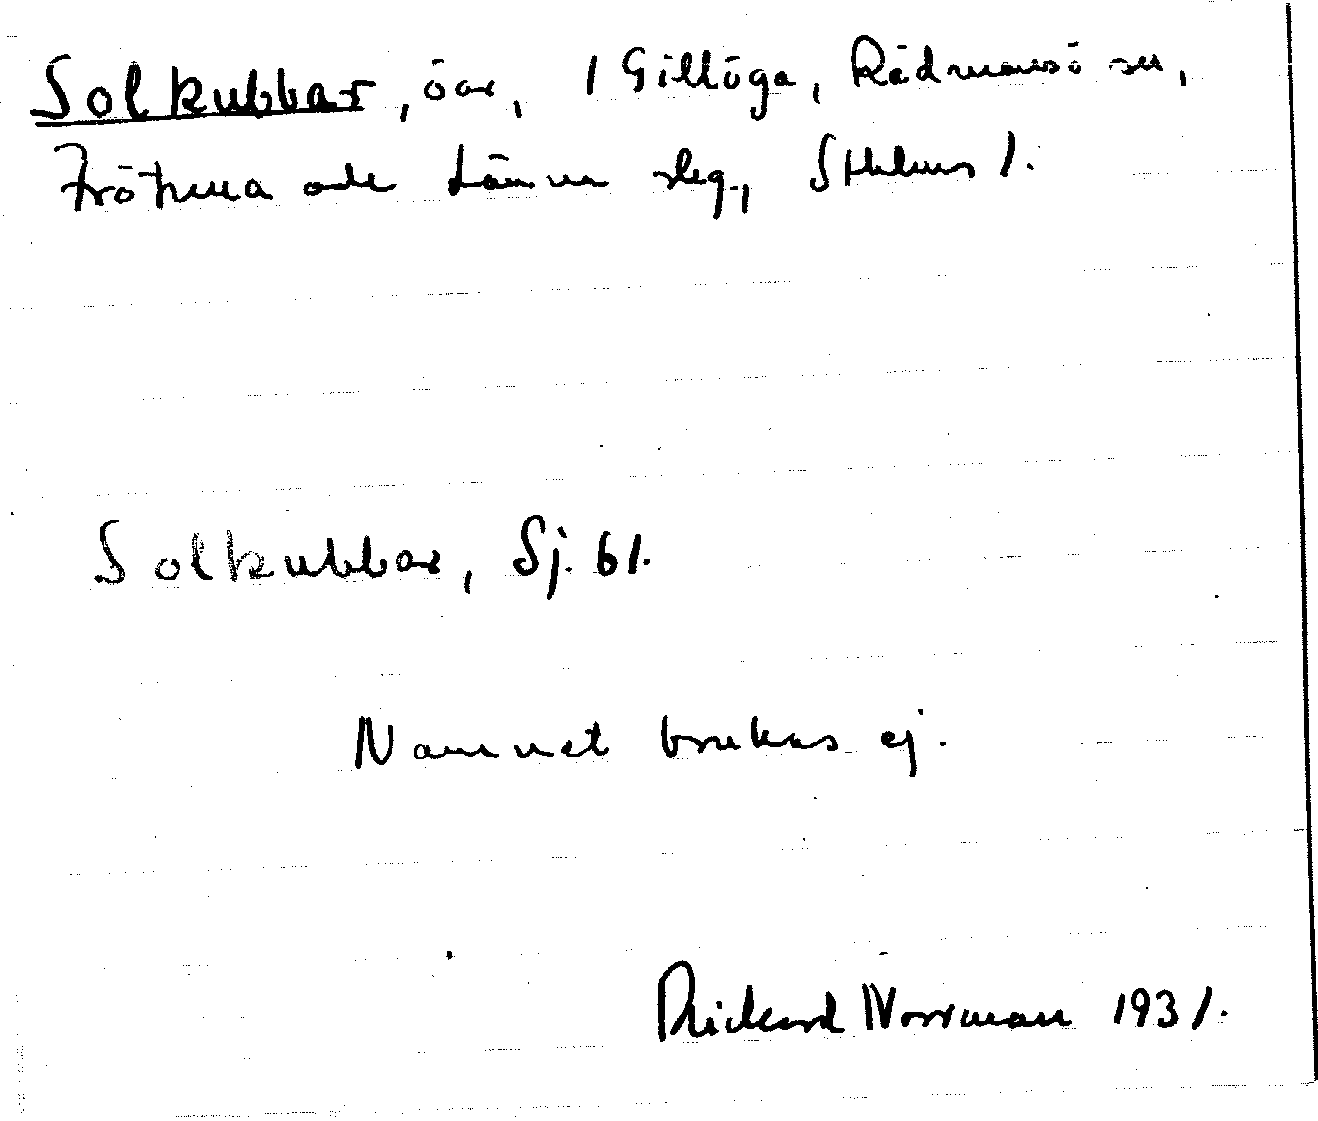 Solkubbar, öar, i Gillöga, Rådmansö sn,
Frötuna och Länna slag, Sthlms l.
Solkubbar, Sj. 61.
Namnet brukas ej.
Rickard Norrman 1931.